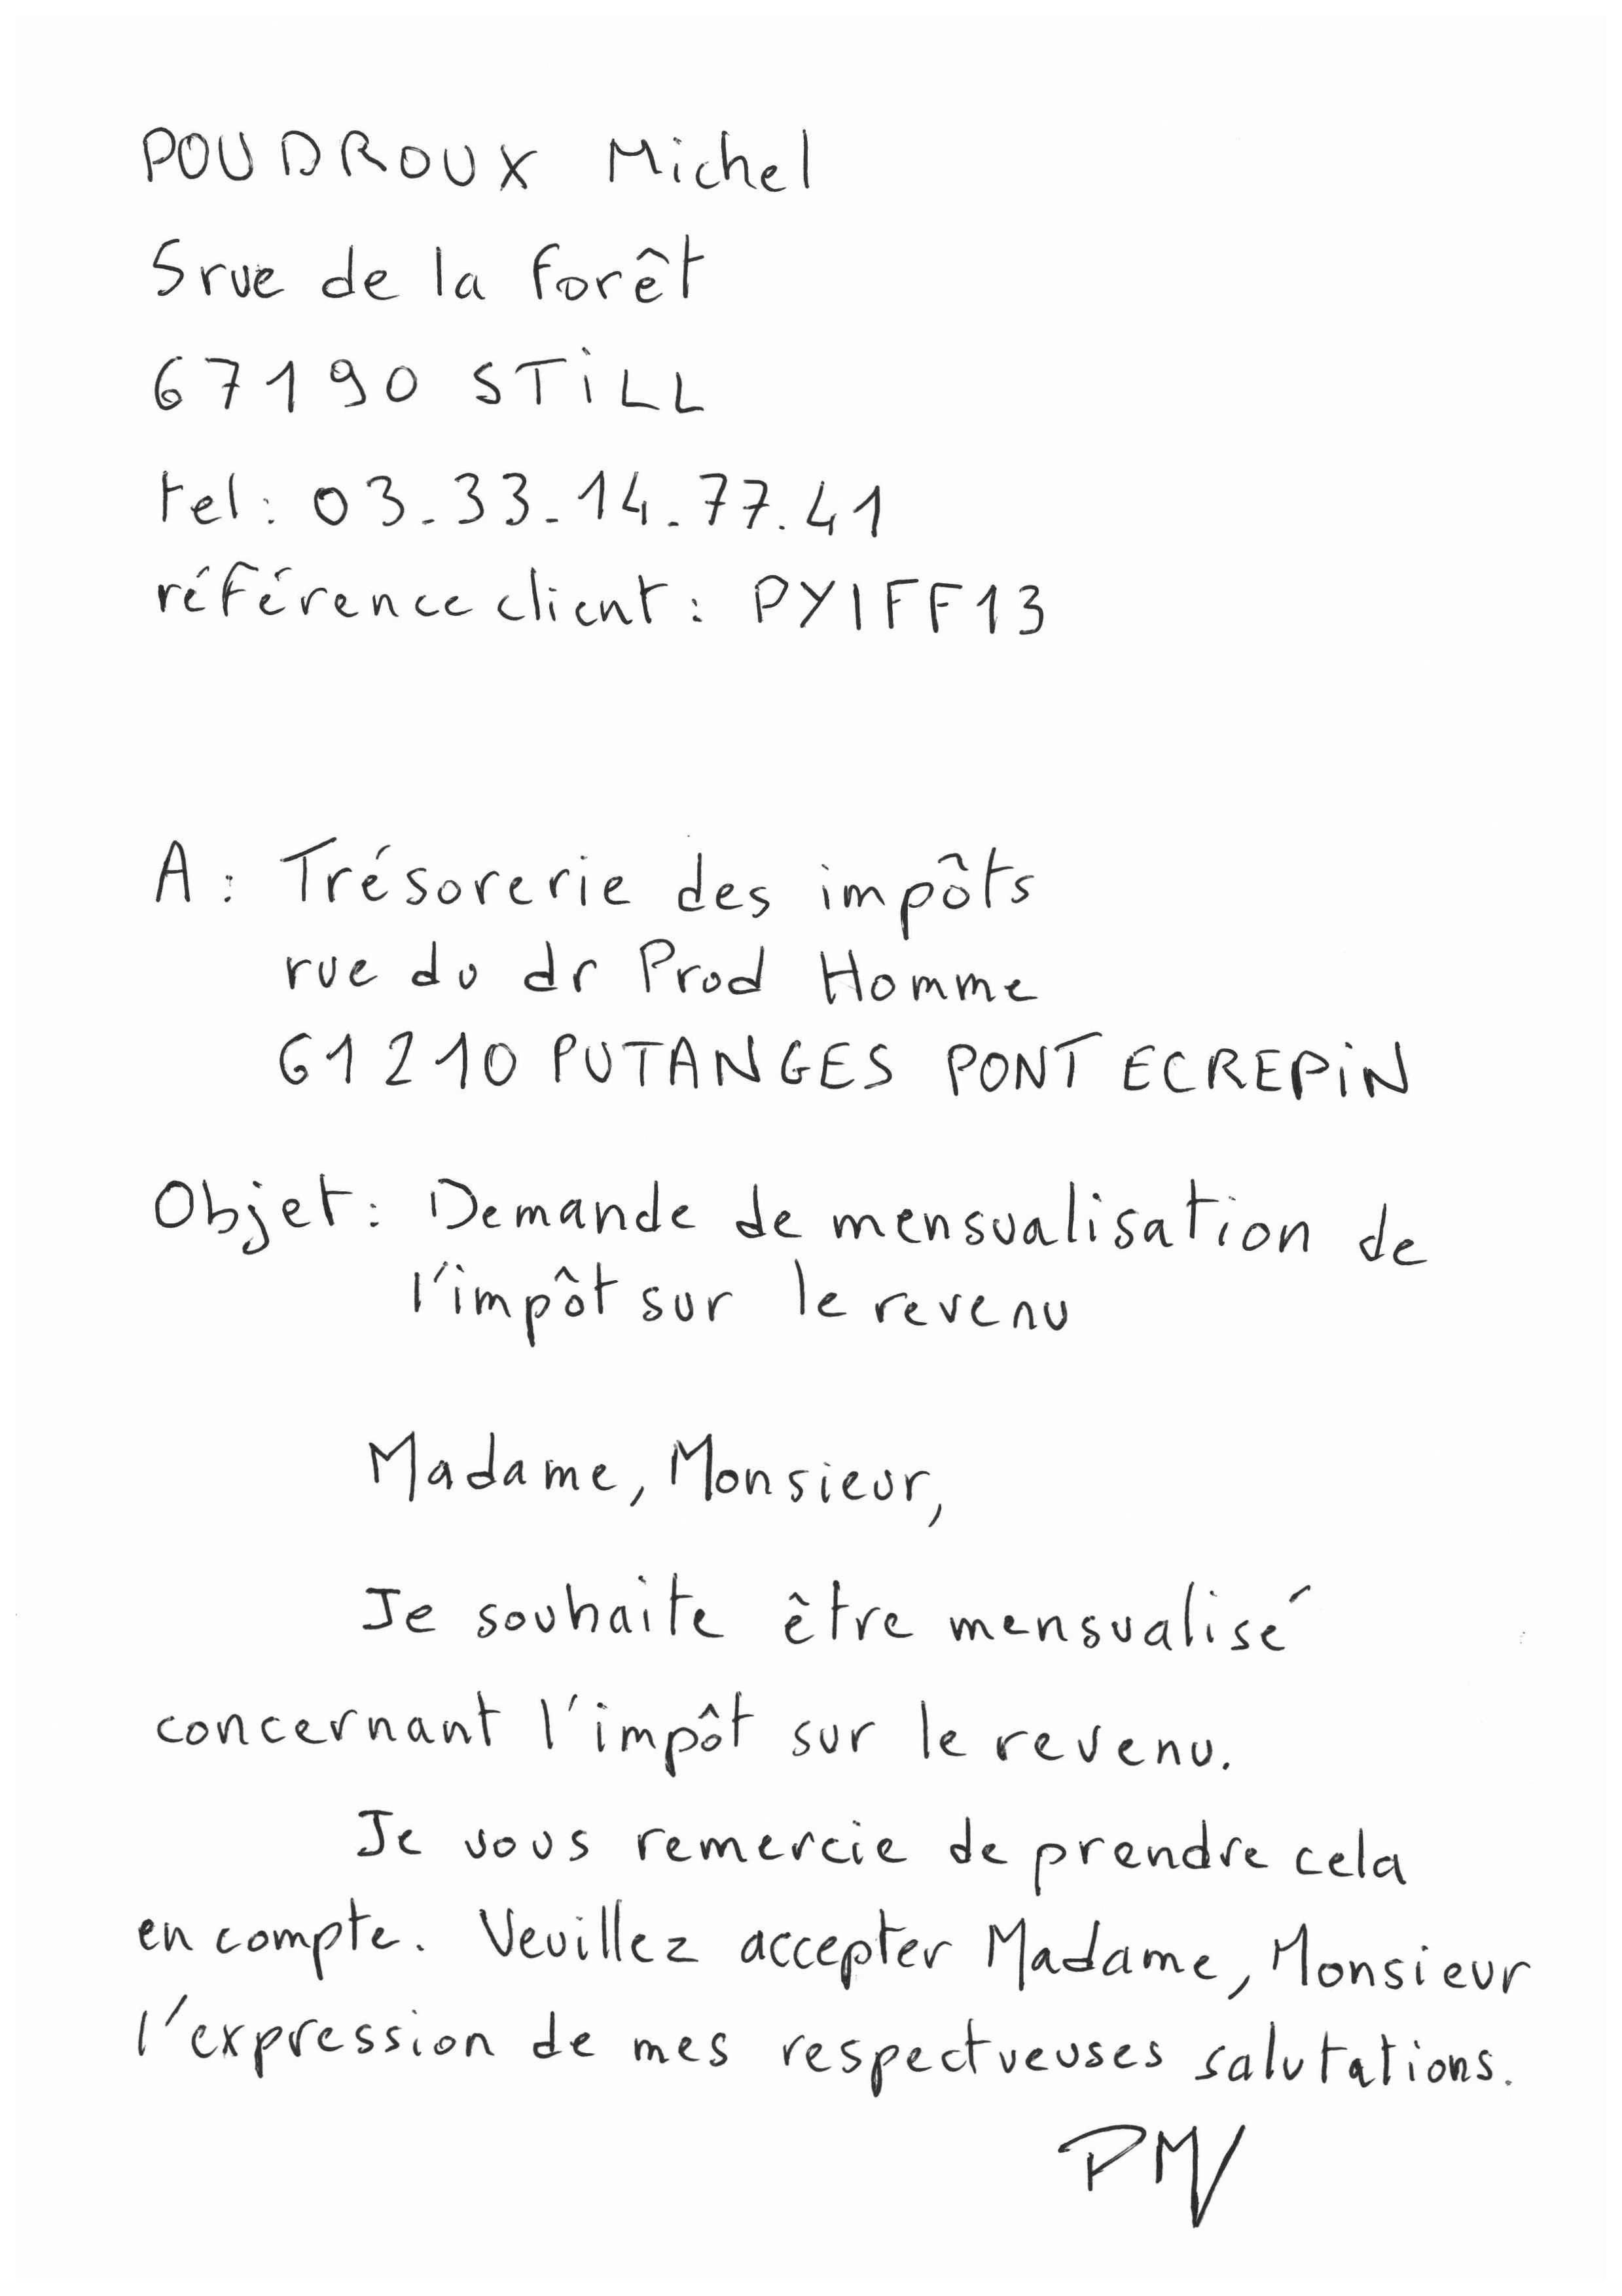 POUDROUX Michel
5 rue de la forêt
67190 STiLL
tel : 03.33.14.77.41
référence client : PYIFF13
A : Trésorerie des impôts
rue du dr Prod Homme
61210 PUTANGES PONT ECREPiN
Objet : Demande de mensualisation de
l'impôt sur le revenu
Madame, Monsieur,
Je souhaite être mensualisé
concernant l'impôt sur le revenu.
Je vous remercie de prendre cela
en compte. Veuillez accepter Madame, Monsieur
l'expression de mes respectueuses salutations.
PM